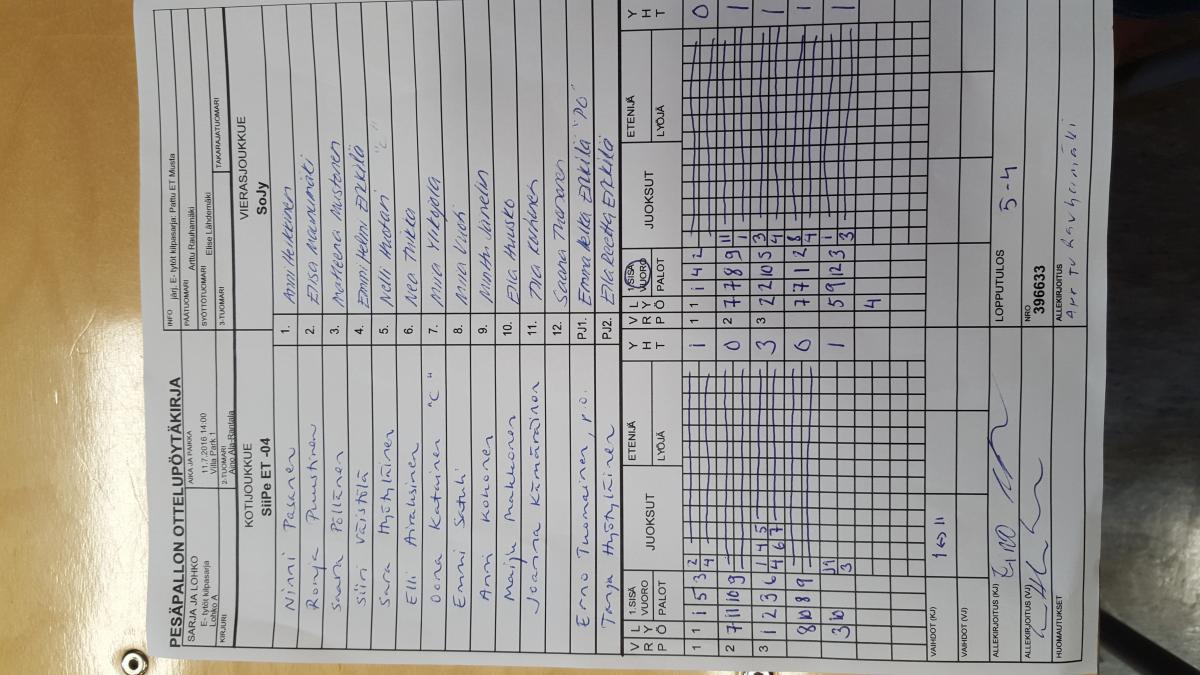 PESÄPALLON OTTELUPÖYTÄKIRJA
SARJA JA LOHKO
E- tytöt kilpasarja
Lohko A
AIKA JA PAIKKA
11.7.2016 14:00
Villa Park 1
INFO järj. E- tytöt kilpasarja: Pattu ET Musta
PÄÄTUOMARI Arttu Rauhamäki
SYÖTTÖTUOMARI Elise Lähdemäki
KIRJURI
2-TUOMARI
Aino Ala-Rantala
3-TUOMARI
TAKARAJATUOMARI
KOTIJOUKKUE
SiiPe ET -04
VIERASJOUKKUE
SoJy
Ninni Pasanen 1. Anni Heikkinen
Ronja Puustinen 2. Elisa Mannumäki
Saara Pöllänen 3. Matleena Mustonen
Siiri Väistölä 4. Emmi Helmi Erkkilä
Sara Hyötyläinen 5. Nelli Huotari "C"
Elli Airaksinen 6. Nea
Oona Katainen "C" 7.
Emmi 8. Miia
Anni Kokonen 9. Minttu
Maiju Makkonen 10. Ella Huusko
Joanna Kämäräinen 11.
12. Saana
Erno Tuomainen, p.o. PJ1. Emma Jella Erkkilä "PO"
Tanja Hyötyläinen PJ2. Ella Reetta Erkkilä
V R P L Y Ö 1.SISÄ VUORO PALOT JUOKSUT ETENIJÄ LYÖJÄ Y H T V R P L Y Ö 1.SISÄ VUORO PALOT JUOKSUT ETENIJÄ LYÖJÄ Y H T
1 1 1 5 3 2 4 1 1 1 1 4 2 0
2 7 11 10 9 0 2 7 7 8 9 11 1 1
3 1 2 3 6 1 4 5 4 6 7 3 3 2 2 10 5 3 4 1
8 10 8 9 0 7 7 1 2 8 4 1
3 10 11 3 1 5 9 12 3 1 3 1
4
VAIHDOT (KJ) 1 ↔ 11
VAIHDOT (VJ)
ALLEKIRJOITUS (KJ)
LOPPUTULOS 5-4
ALLEKIRJOITUS (VJ)
NRO
396633
ALLEKIRJOITUS
HUOMAUTUKSET
Arttu Rauhamäki